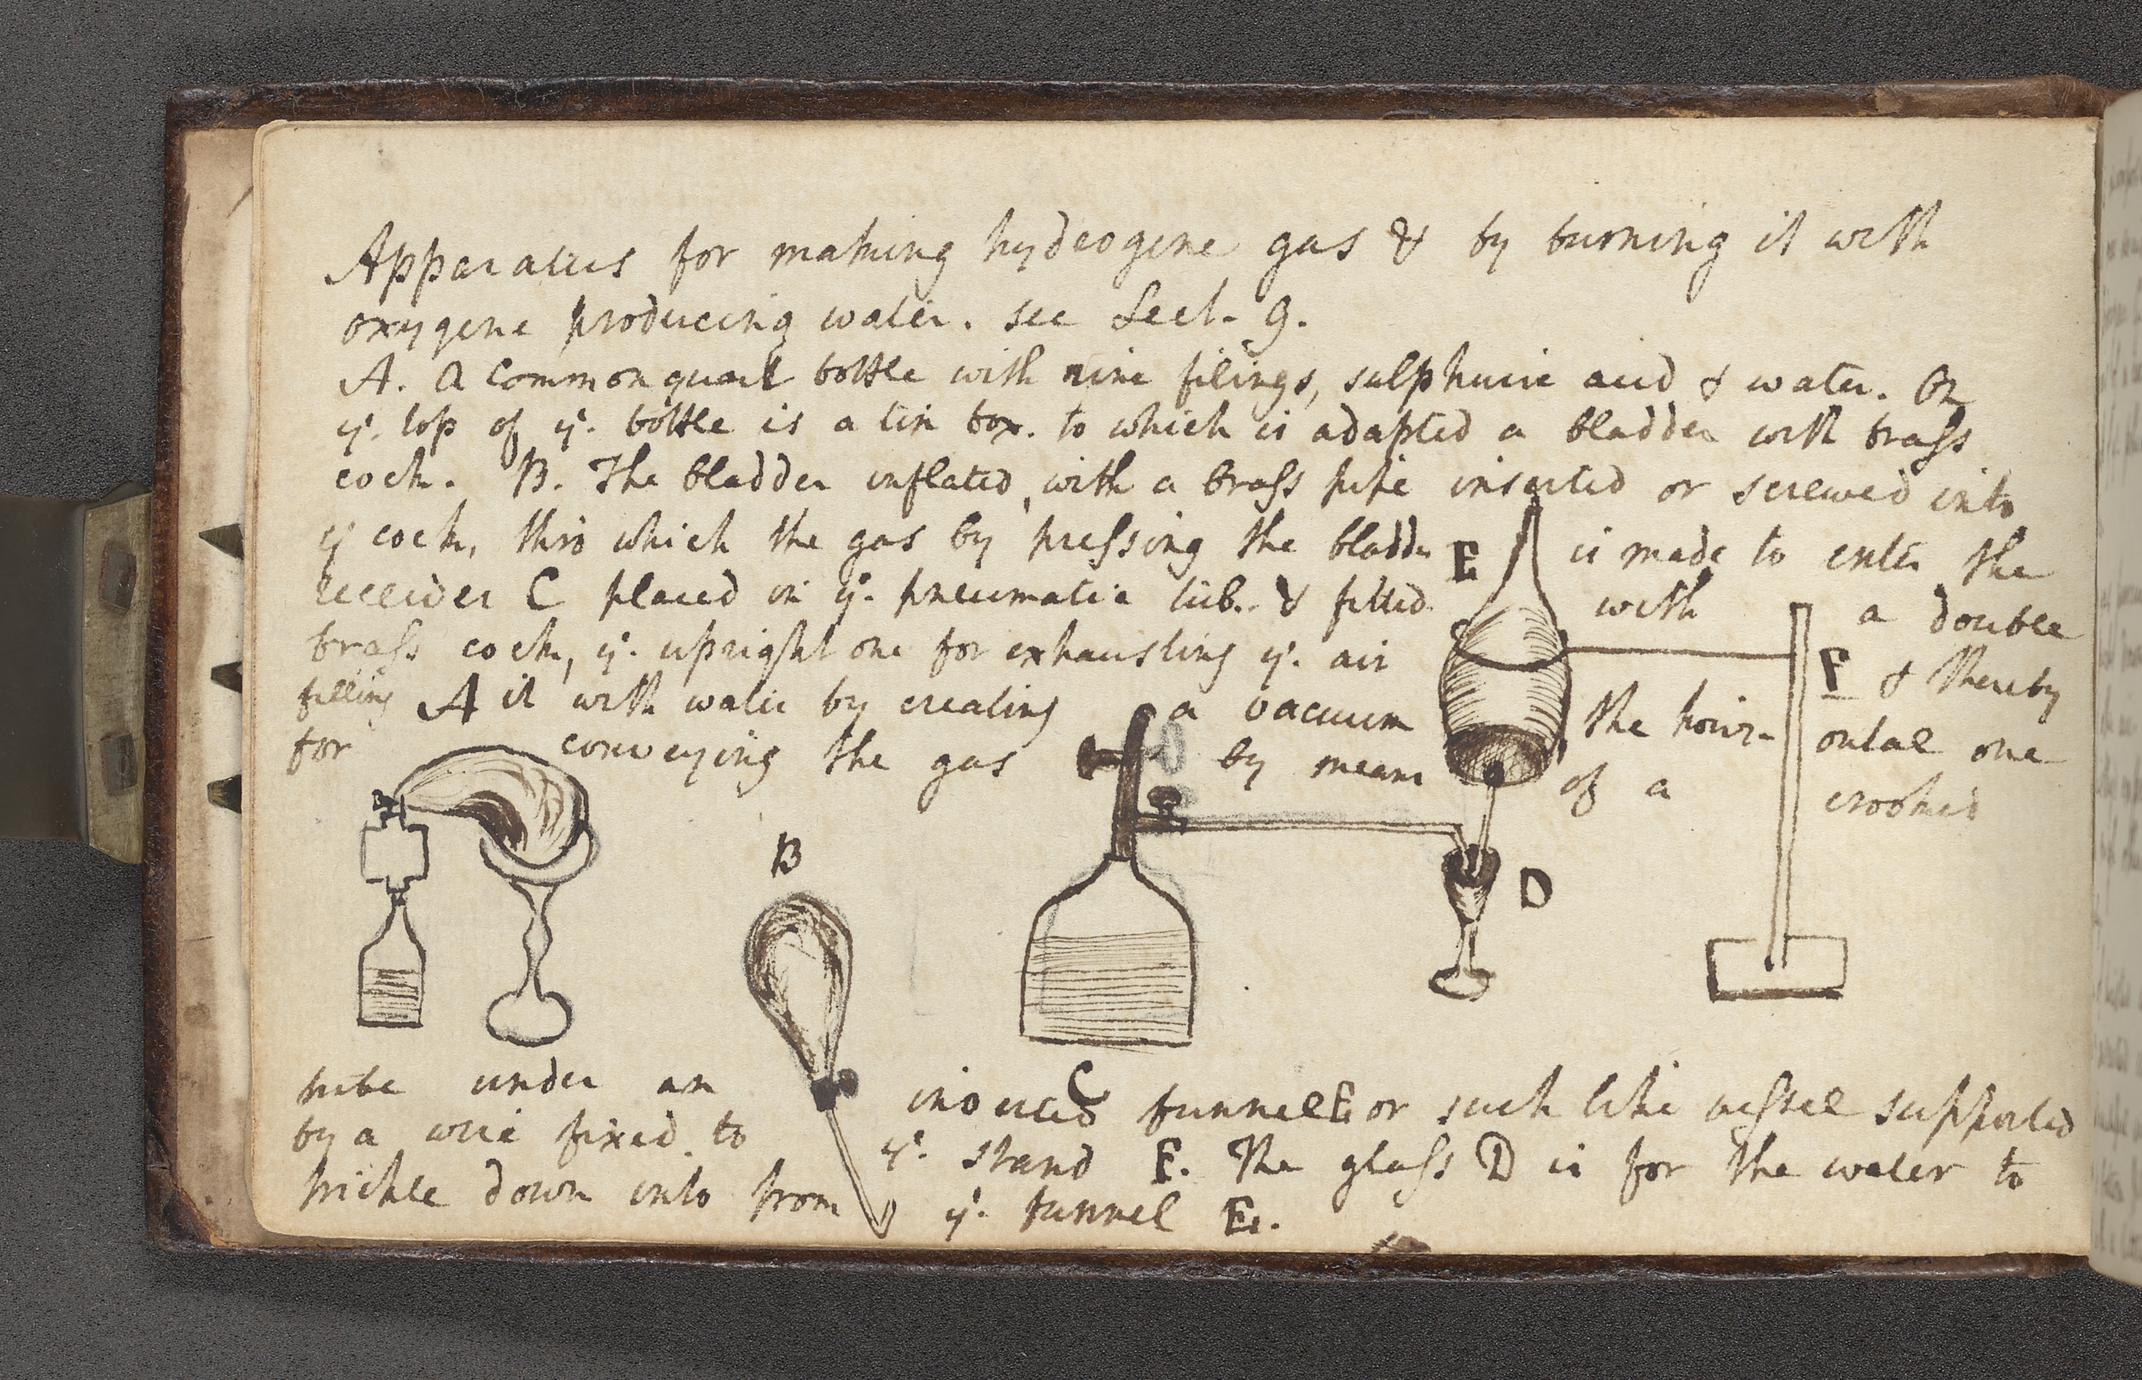 Apparatus for making hydrogene gas & by burning it with
oxygene producing water. see Lect. 9.
A. a common quart bottle with zinc filings, sulphuric acid & water. On
yᵉ. top of yᵉ. bottle is a tin box. to which is adapted a bladder with brass
cock. B. The bladder inflated, with a brass pipe inserted or screwed into
yᵉ cock, thro which the gas by pressing the bladder E is made to enter the
receiver C placed in yᵉ. pneumatic tub. & fitted with a double
brass cock, yᵉ. upright one for exhausting yᵉ. air F & thereby
filling A it with water by creating a vacuum the horiz-
ontal one
for conveying the gas by means of a crooked
B
D
C
tube under an inverted funnel E or such like vessel supported
by a wire fixed to yᵉ. stand F. The glass D is for the water to
trickle down into from yᵉ. funnel E.